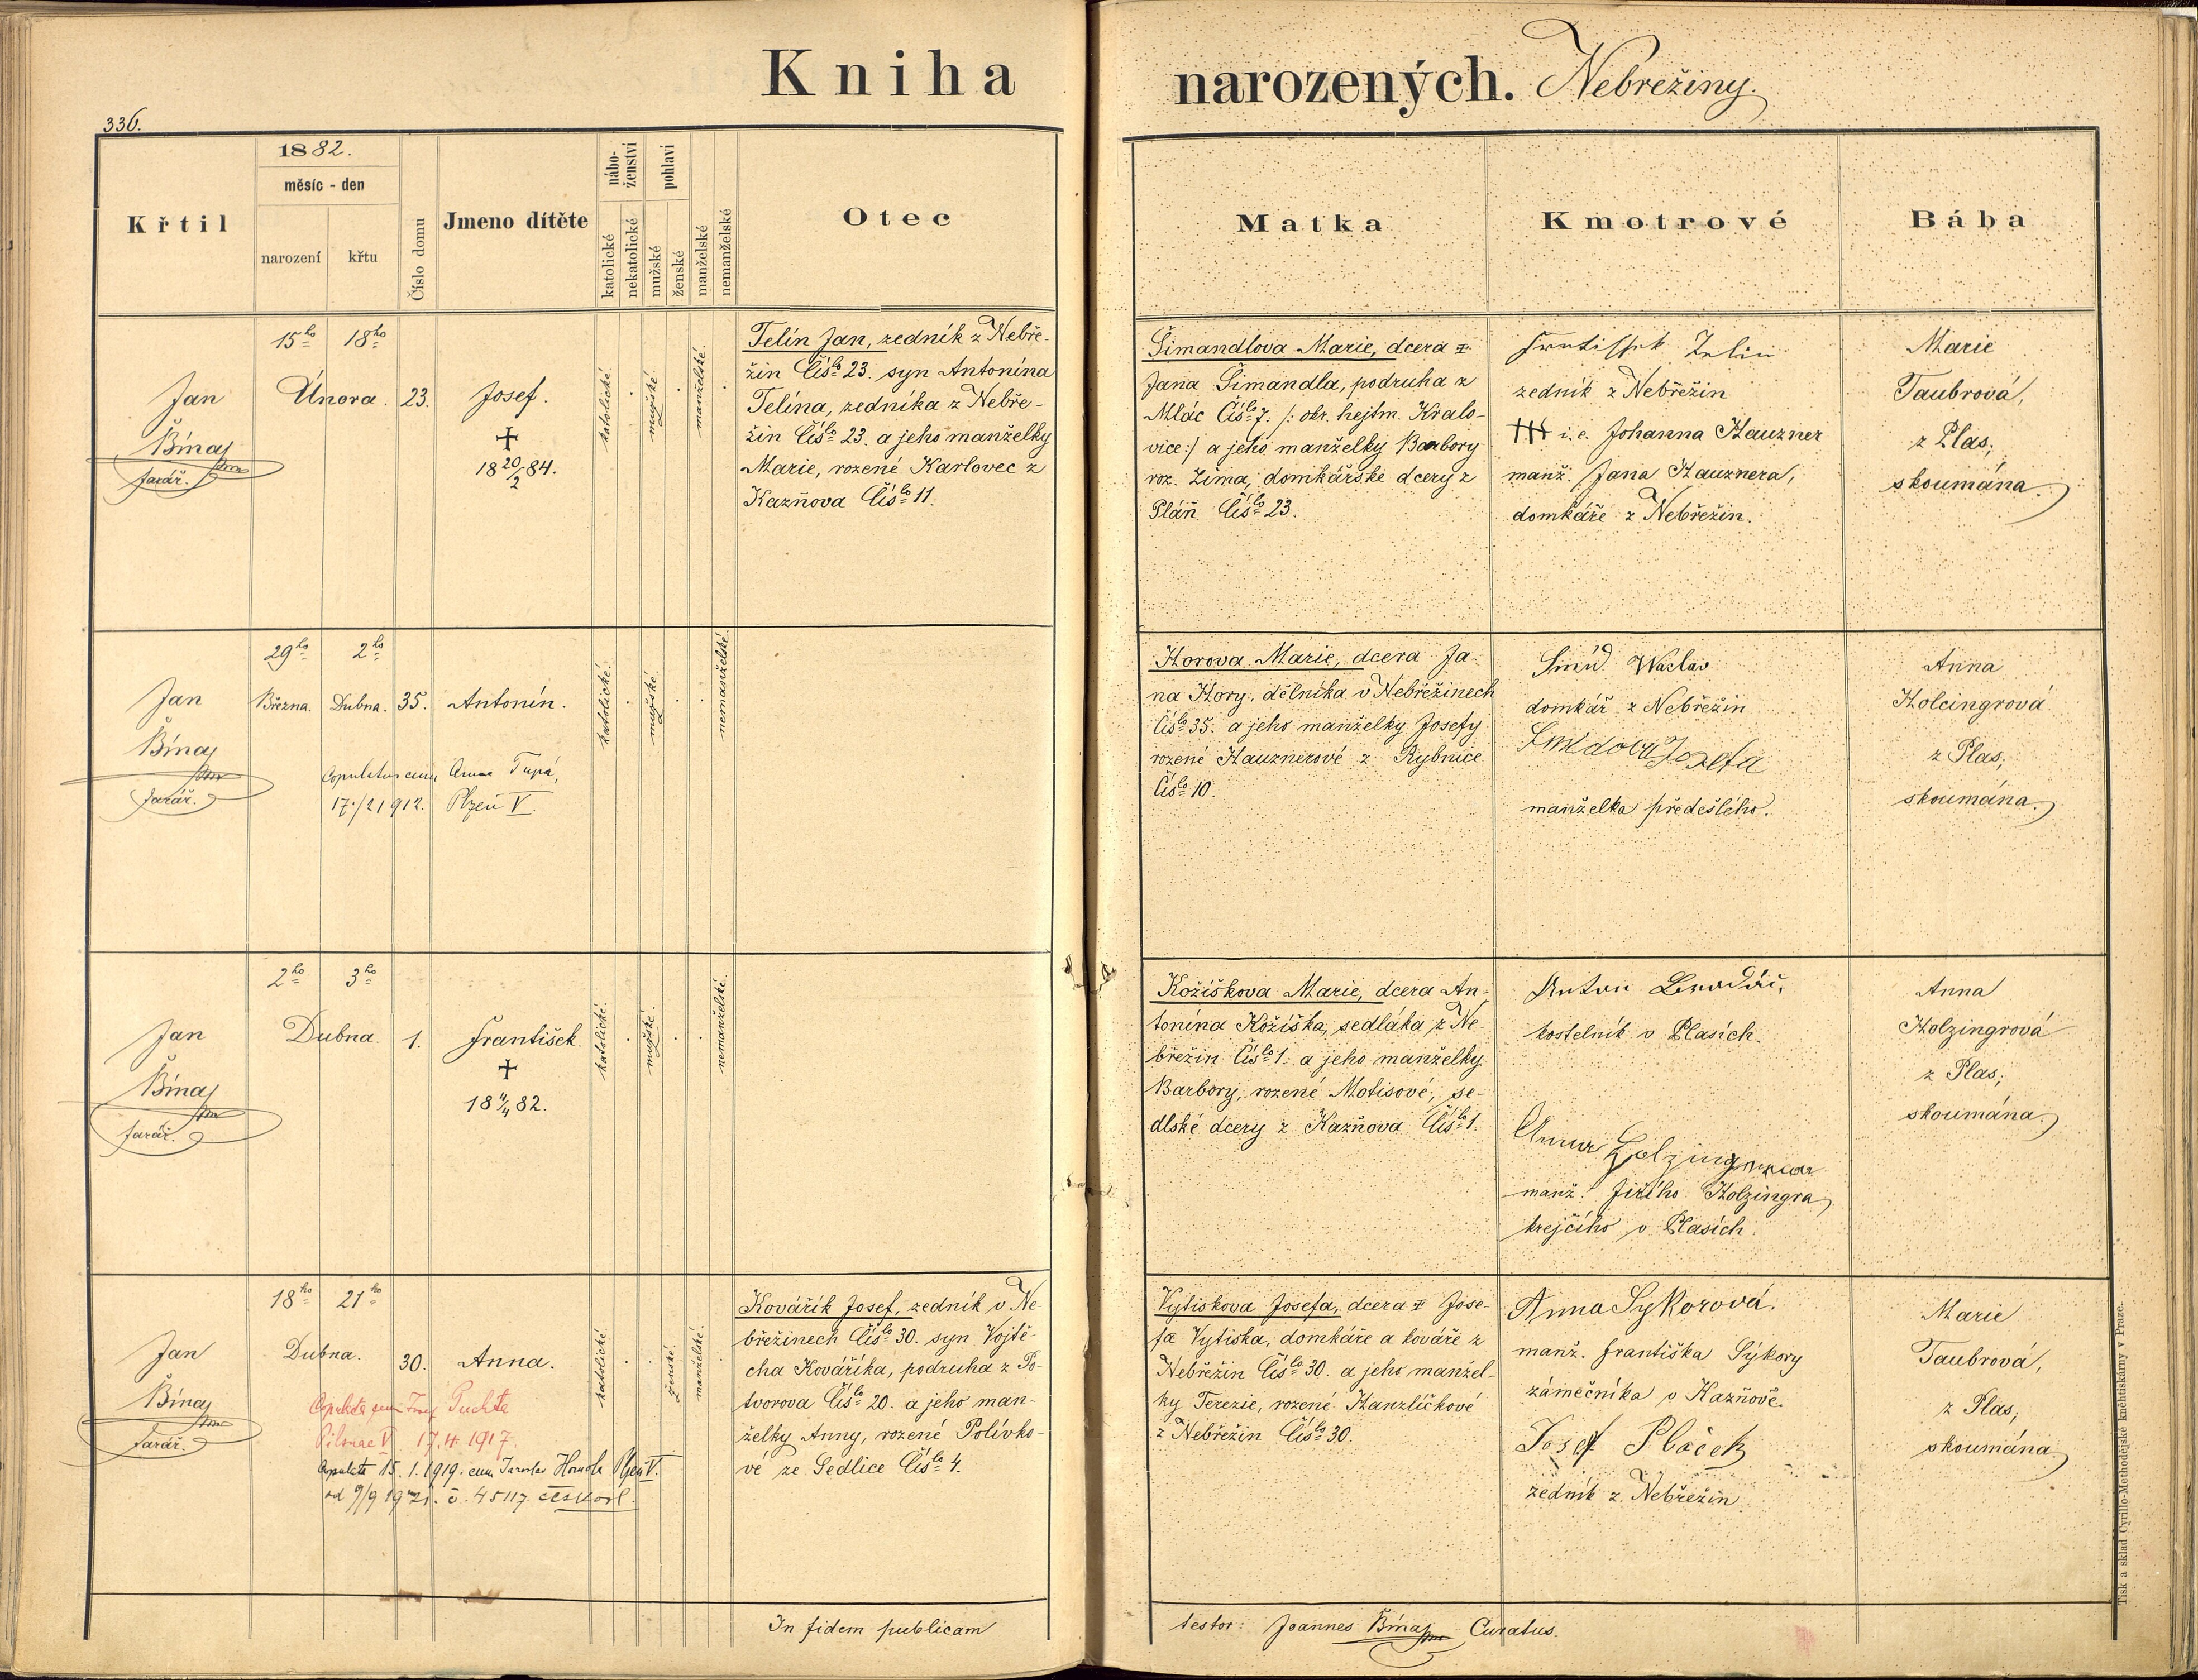 Kniha narozených. Nebřežiny.
336.
1882.
měsíc - den
Křtil
narození
křtu
Číslo domu
Jmeno dítěte
nábo-
ženství
katolické
nekatolické
pohlaví
mužské
ženské
manželské
nemanželské
Otec
Matka
Kmotrové
Bába
Jan
farář.
15ho 18ho
Února.
23.
Josef.
+
18 20/2 84.
katolické
mužské
manželské
Telín Jan, zedník z Nebře-
žin Čislo 23. syn Antonína
Telína, zedníka z Nebře-
žin Čislo 23. a jeho manželky
Marie, rozené Karlovec z
Kazňova Čislo 11.
Šimandlova Marie, dcera
Jana Šimandla, podruha z
Mlác Čislo 7. /: okr. hejtm. Kralo-
vice:/ a jeho manželky Barbory
roz. Zima, domkářské dcery z
Pláň Čislo 23.
zedník z Nebřežin
+++ i. e. Johanna Hauzner
manž. Jana Hauznera,
domkáře z Nebřežin.
Marie
Taubrová,
z Plas;
skoumána.
Jan
farář.
29ho 2ho
Března. Dubna.
35.
Antonín.
Copulatus cum Anna Tupá,
17./2 1912. Plzeň V.
katolické
mužské
nemanželské
Horova Marie, dcera Ja-
na Hory, dělníka v Nebřežinech
Čislo 35. a jeho manželky Josefy
rozené Hauznerové z Rybnice
Čislo 10.
Šmíd Waclav
domkář z Nebřežin
Šmidova Jozefa
manželka předešlého.
Anna
Holcingrová
z Plas;
skoumána.
Jan
farář.
2ho 3ho
Dubna.
1.
František
+
18 4/4 82.
katolické
mužské
nemanželské
Kožíškova Marie, dcera An-
tonína Kožíška, sedláka z Ne-
břežin Čislo 1. a jeho manželky
Barbory, rozené Motisové, se-
dlské dcery z Kazňova Čislo 1.
Anton
kostelník v Plasích.
Anna Holzingrova
manž. Jiřího Holzingra,
krejčího v Plasích.
Anna
Holzingrová
z Plas;
skoumána.
Jan
farář.
18ho 21ho
Dubna.
30.
Anna.
Copulata cum Josef Puchta
Pilsnae V 17.4.1917.
Copulata 15.1.1919. cum Jaroslav Homola Plzeň V.
katolické
ženské
manželské
Kovářík Josef, zedník v Ne-
břežinech Čislo 30. syn Vojtě-
cha Kováříka, podruha z Po-
tvorova Čislo 20. a jeho man-
želky Anny, rozené Polívko-
vé ze Sedlice Čislo 4.
Vytiskova Josefa, dcera Jose-
fa Vytiska, domkáře a kováře z
Nebřežin Čislo 30. a jeho manžel-
ky Terezie, rozené Hanzlíčkové
z Nebřežin Čislo 30.
Anna Sykorová.
manž. Františka Sýkory
zámečníka v Kazňově.
Josef Ploček
zedník z Nebřežin
Marie
Taubrová,
z Plas;
skoumána.
In fidem publicam
testor: Joannes Curatus.
Tisk a sklad Cyrillo-Methodějské knihtiskárny v Praze.